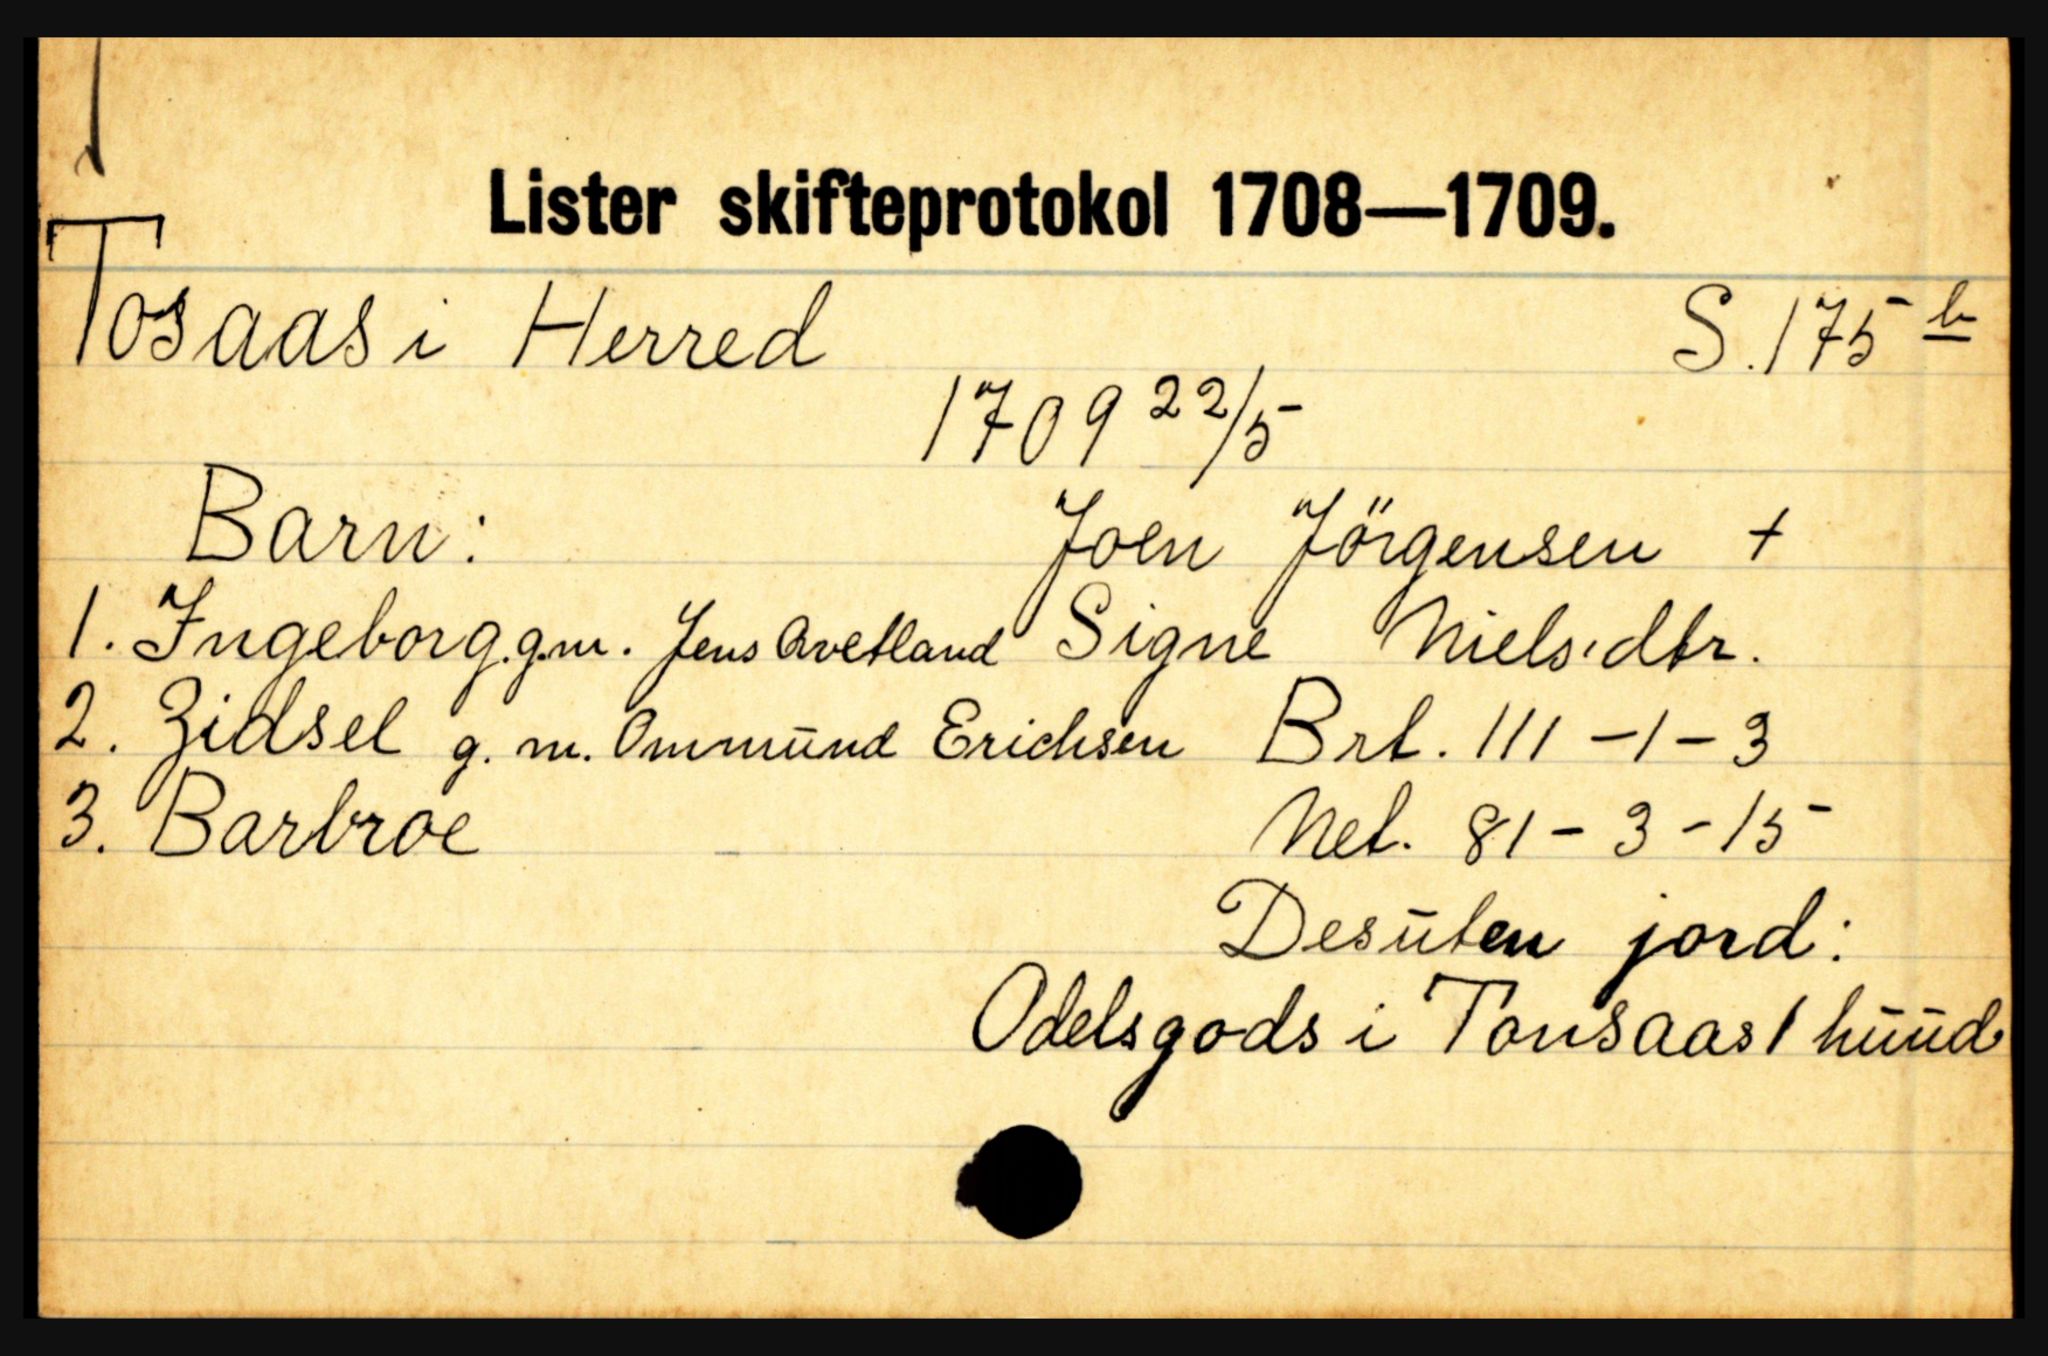 Lister skifteprotokol 1708—1709.
Tosaas i Herred S. 175 b
1709 22/5
Barn: Joen Jörgensen +
1. Ingeborg. g.m. Jens Qvetland Signe Nielsdtr.
2. Zidsel g. m. Ommūnd Erichsen Brt. 111 - 1 - 3
3. Barbroe Net. 81 - 3 - 15
Desūten jord:
Odelsgods i Tonsaas 1 hūūd